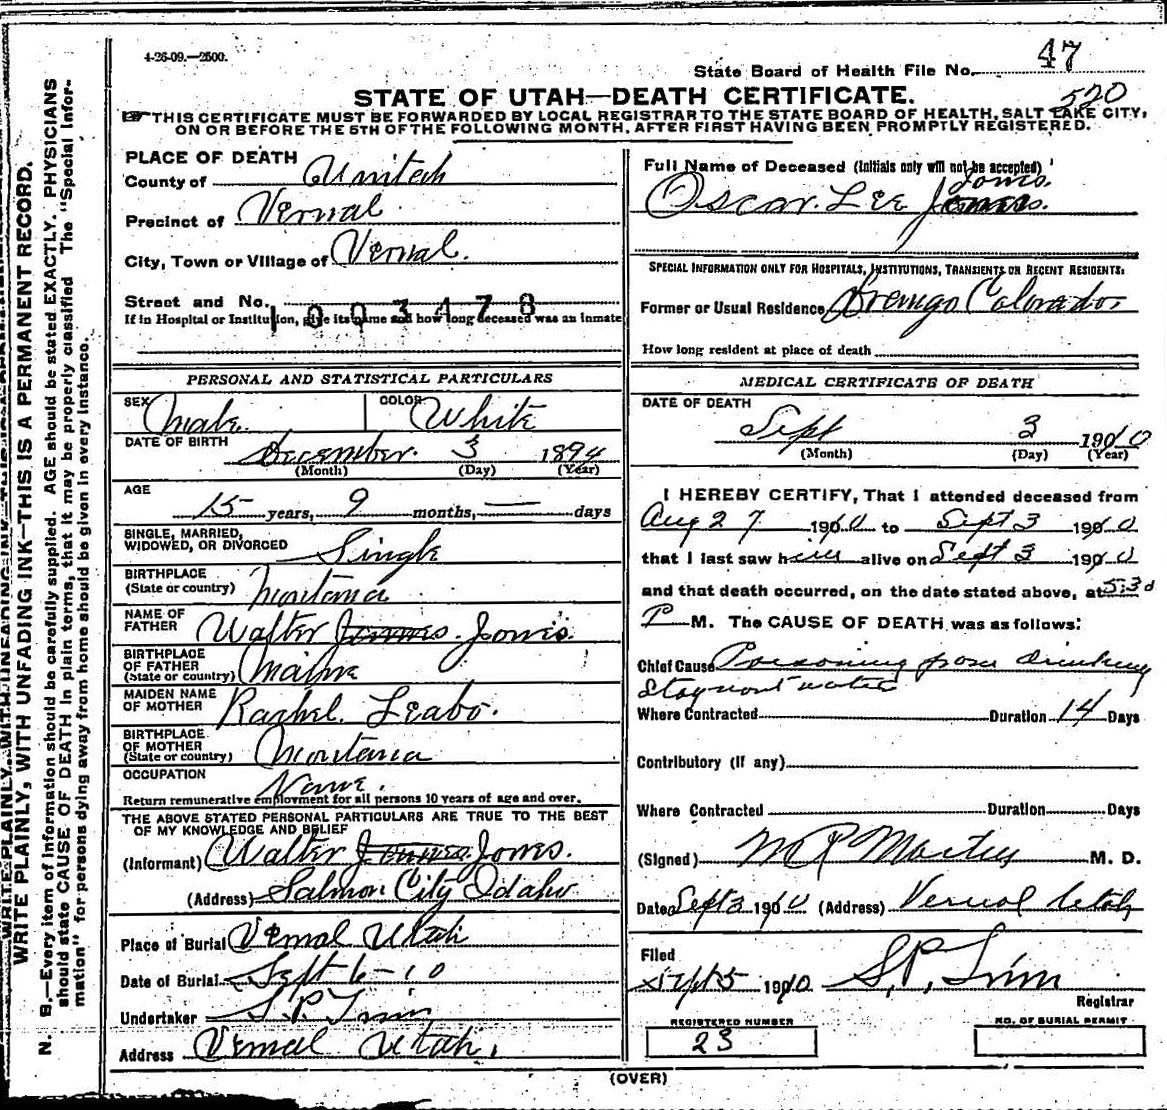 4-26-09.—2500.
State Board of Health File No. 47
520
STATE OF UTAH—DEATH CERTIFICATE.
THIS CERTIFICATE MUST BE FORWARDED BY LOCAL REGISTRAR TO THE STATE BOARD OF HEALTH, SALT LAKE CITY,
ON OR BEFORE THE 5TH OF THE FOLLOWING MONTH, AFTER FIRST HAVING BEEN PROMPTLY REGISTERED.
PLACE OF DEATH
County of Unitah
Precinct of Vernal
City, Town or Village of Vernal.
Street and No.
1003478
If in Hospital or Institution, give its name and how long deceased was an inmate
Full Name of Deceased (Initials only will not be accepted)
Jones.
Oscar. Lee
SPECIAL INFORMATION ONLY FOR HOSPITALS, INSTITUTIONS, TRANSIENTS OR RECENT RESIDENTS:
Former or Usual Residence Colorado.
How long resident at place of death
PERSONAL AND STATISTICAL PARTICULARS
SEX Male.
COLOR White
DATE OF BIRTH December. 3 1894
(Month) (Day) (Year)
AGE
15 years, 9 months, — days
SINGLE, MARRIED,
WIDOWED, OR DIVORCED Single
BIRTHPLACE
(State or country) Montana
NAME OF
FATHER Walter Jones.
BIRTHPLACE
OF FATHER
(State or country) Maine
MAIDEN NAME
OF MOTHER Rachel. Leabo.
BIRTHPLACE
OF MOTHER
(State or country) Montana
OCCUPATION None.
Return remunerative employment for all persons 10 years of age and over.
THE ABOVE STATED PERSONAL PARTICULARS ARE TRUE TO THE BEST
OF MY KNOWLEDGE AND BELIEF
(Informant) Walter Jones.
(Address) Salmon City Idaho
Place of Burial Vernal Utah
Date of Burial Sept 6-10
Undertaker S. P.
Address Vernal Utah.
MEDICAL CERTIFICATE OF DEATH
DATE OF DEATH
Sept 3 1910
(Month) (Day) (Year)
I HEREBY CERTIFY, That I attended deceased from
Aug 27 1910 to Sept 3 1910
that I last saw him alive on Sept 3 1910
and that death occurred, on the date stated above, at 5:30
P M. The CAUSE OF DEATH was as follows:
Chief Cause Poisoning from drinking
water
Where Contracted Duration 14 Days
Contributory (if any)
Where Contracted Duration Days
(Signed) M. D.
Date Sept 3 1910 (Address) Vernal Utah
Filed
Sept 5 1910. S. P.
Registrar
REGISTERED NUMBER
23
NO. OF BURIAL PERMIT
(OVER)
WRITE PLAINLY, WITH UNFADING INK—THIS IS A PERMANENT RECORD.
N. B.—Every item of information should be carefully supplied. AGE should be stated EXACTLY. PHYSICIANS
should state CAUSE OF DEATH in plain terms, that it may be properly classified The "Special Infor-
mation" for persons dying away from home should be given in every instance.